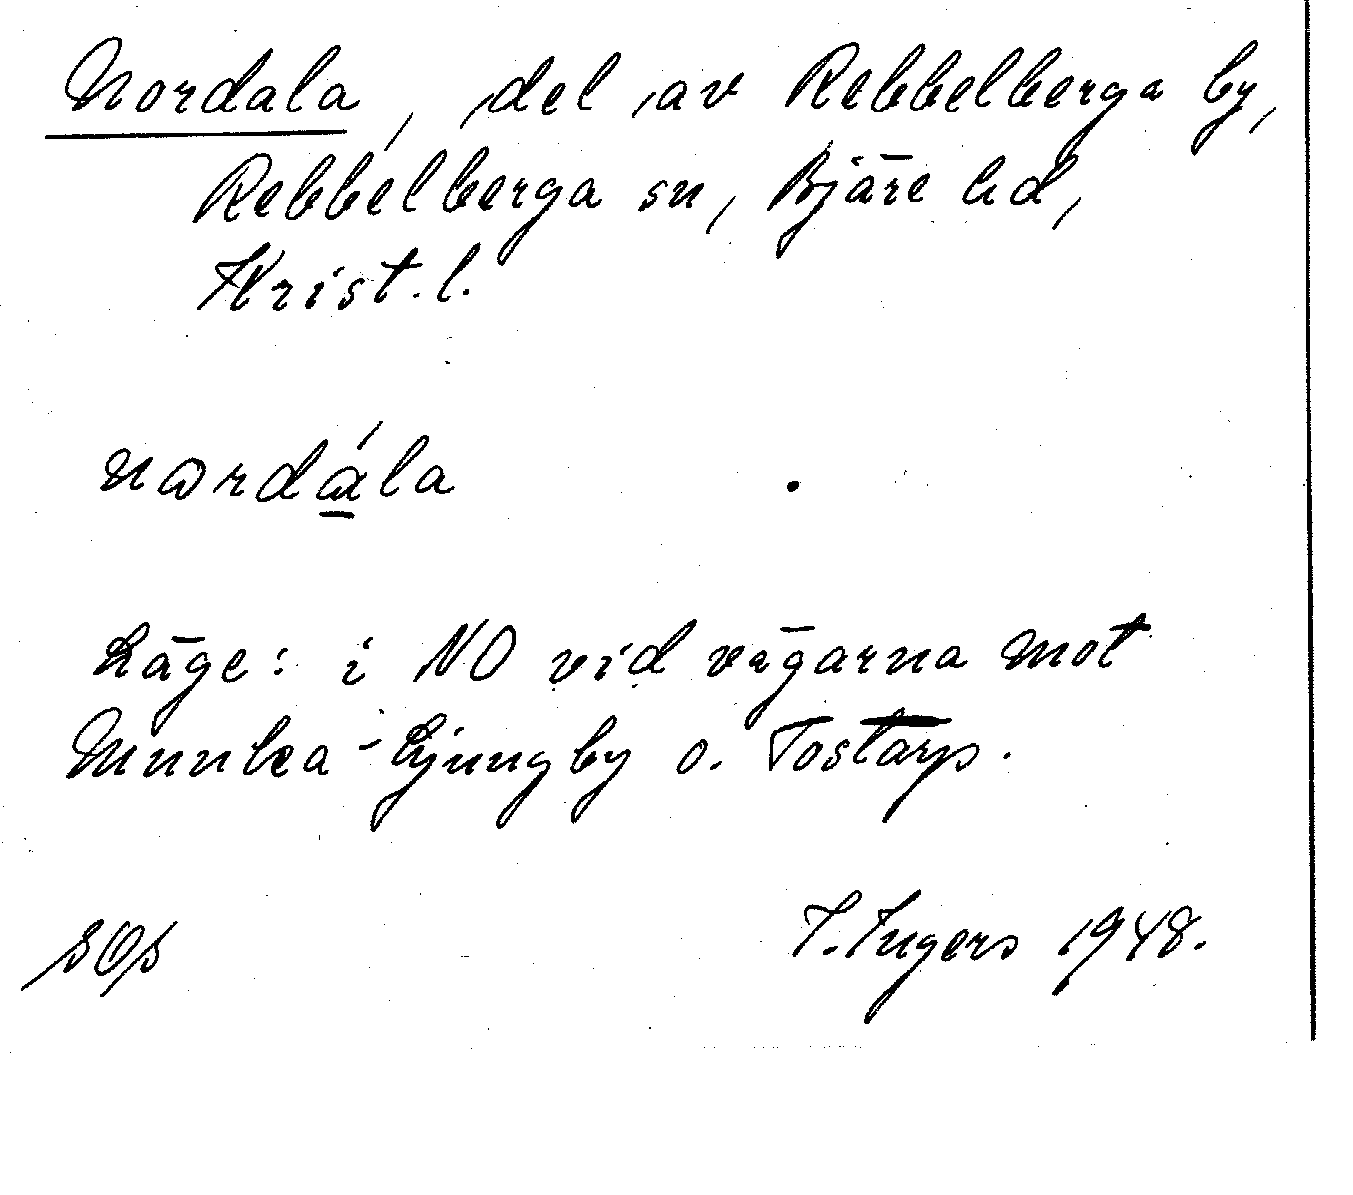 Nordala, del av Rebbelberga by,
Rebbelberga sn, Bjäre hd,
Krist. l.
nordála
Läge: i NO vid vägarna mot
Munka-Ljungby o. Tostarp.
I. Ingers 1948.